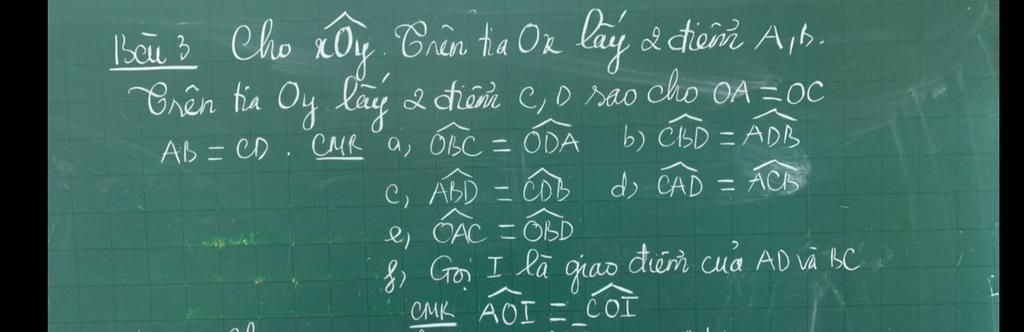 Bài 3 Cho xÔy. Trên tia Ox lấy 2 điểm A, B.
Trên tia Oy lấy 2 điểm C, D sao cho OA = OC
AB = CD. CMR a, \widehat{OBC} = \widehat{ODA} b) \widehat{CBD} = \widehat{ADB}
c, \widehat{ABD} = \widehat{CDB} d, \widehat{CAD} = \widehat{ACB}
e, \widehat{OAC} = \widehat{OBD}
f, Gọi I là giao điểm của AD và BC
CMR \widehat{AOI} = \widehat{COI}